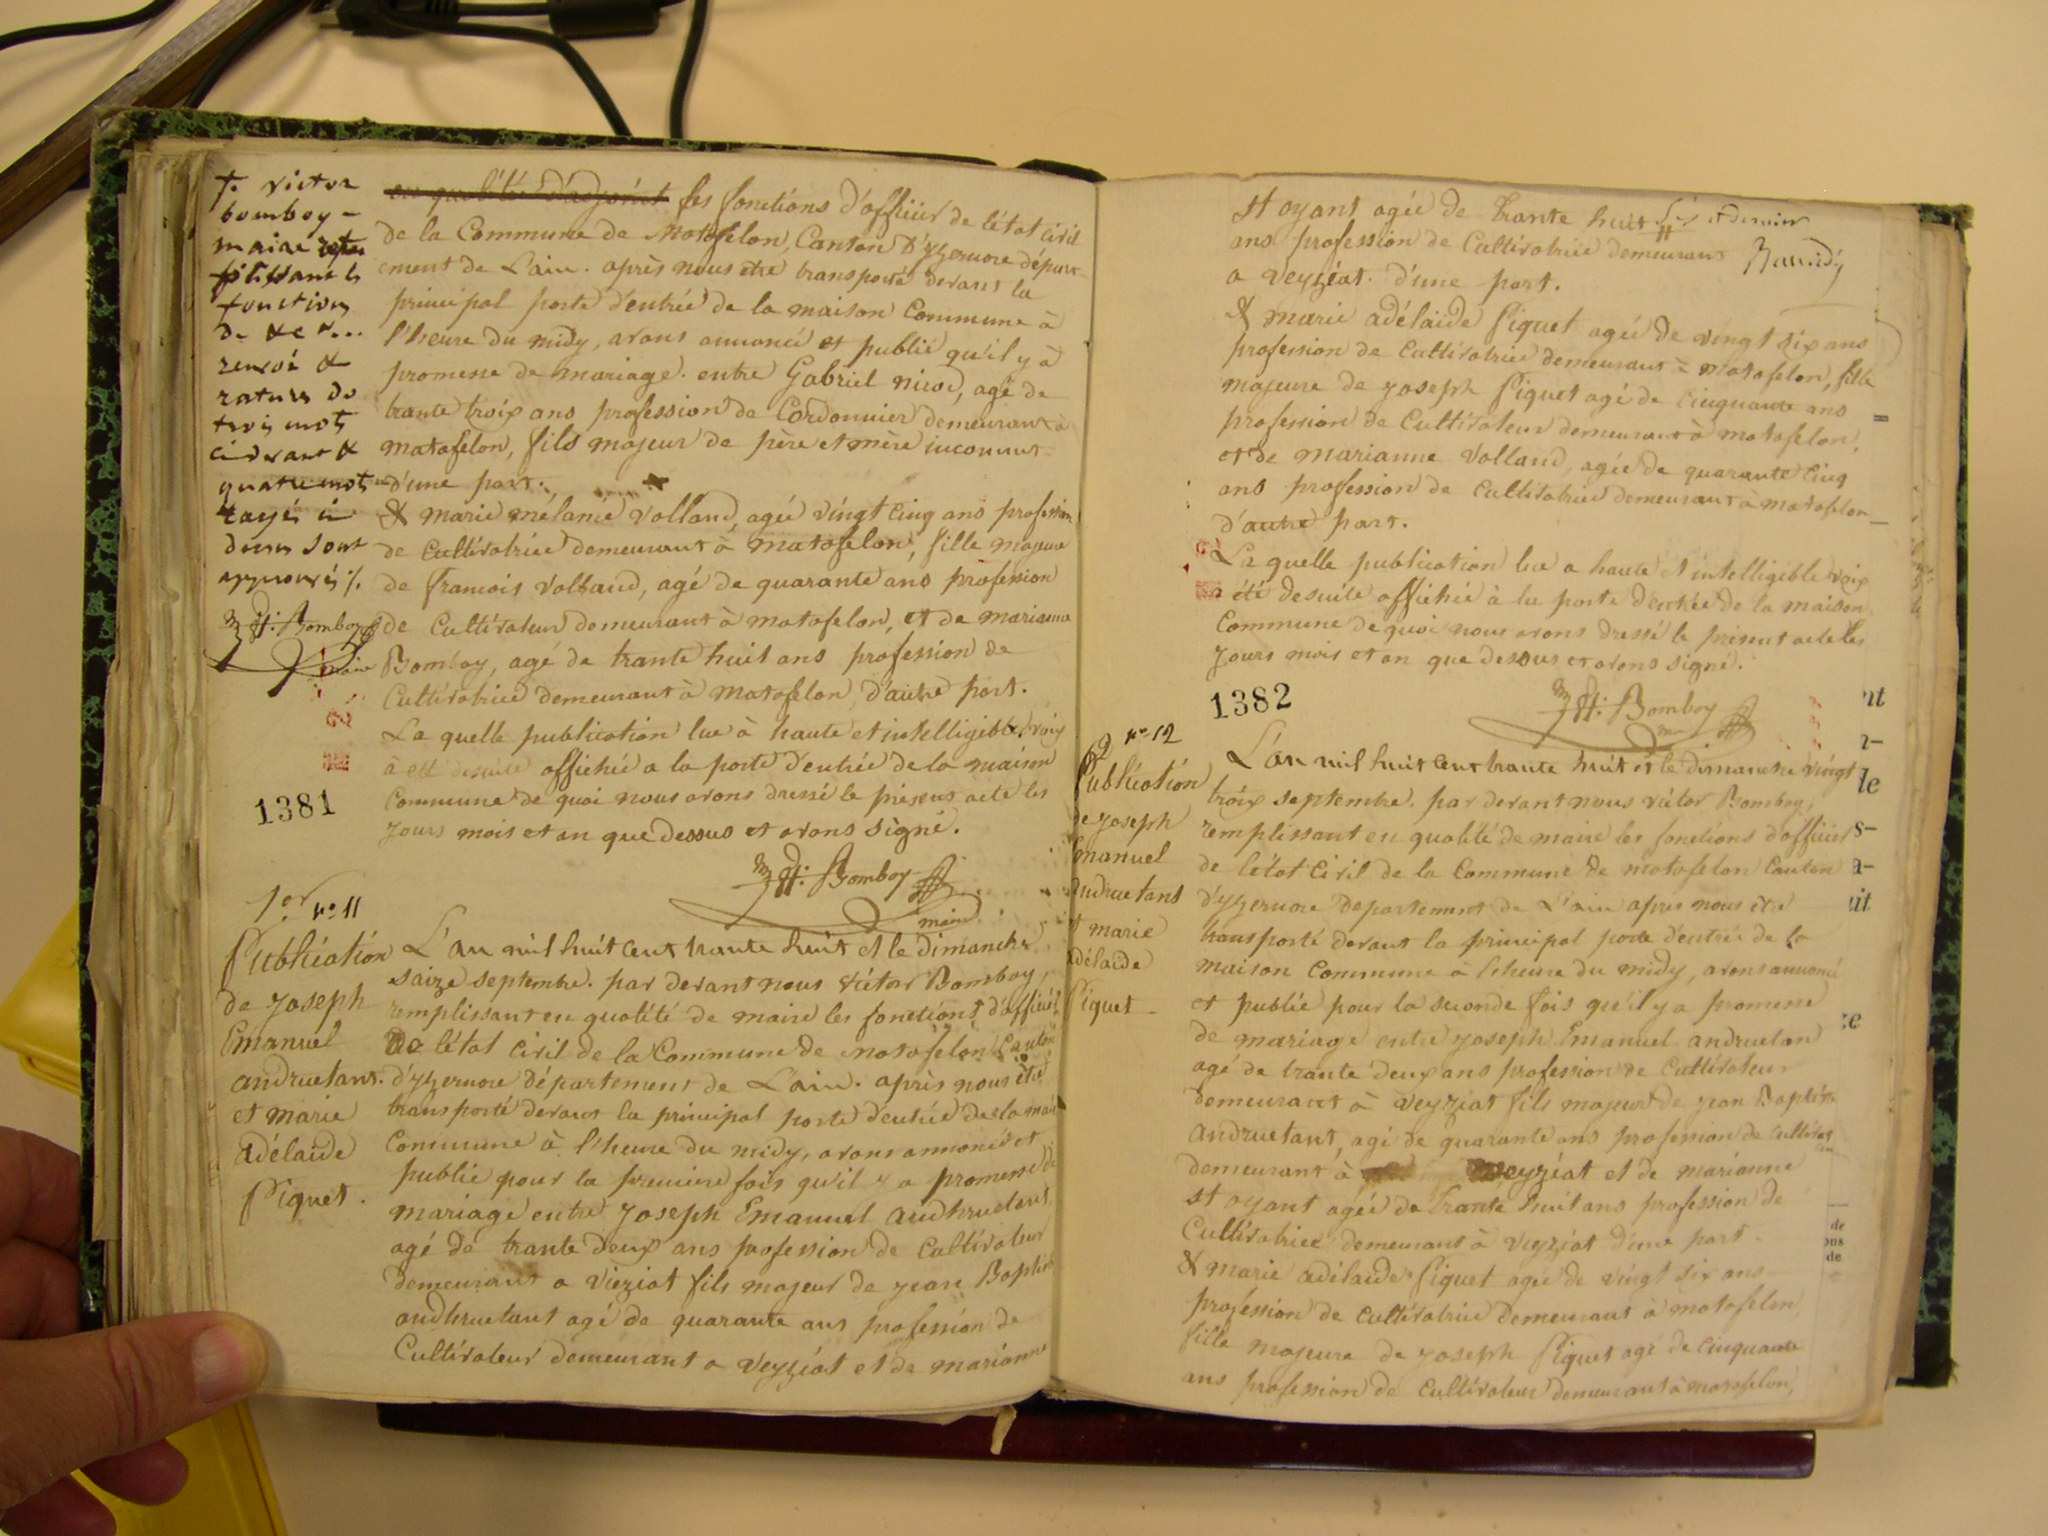 +. victor
bomboy -
maire
plissant les
fonctions
de &c...
renvoi &
rature de
trois mots
ci devant &
quatre mots
rayés ci
dessus sont
approuvés ./.
Bomboy
maire
en qualité d'adjoint les fonctions d'officier de létat civil
de la Commune de Matafelon, Canton D'yzernore départ-
ement de L'ain. après nous être transporté devant la
principal porte d'entrée de la maison Commune à
l'heure du midy, avons annoncé et publié qu'il y à
promesse de mariage. entre Gabriel nicod, agé de
trante troix ans profession de Cordonnier demeurant à
matafelon, fils majeur de père et mère inconnut
d'une part.
& marie melanie Volland, agée vingt cinq ans profession
de Cultivatrice demeurant à matafelon, fille majeure
de francois Volland, agé de quarante ans profession
de Cultivateur demeurant à matafelon, et de marianne
Bomboy, agé de trante huit ans profession de
Cultivatrice demeurant à matafelon, d'autre part.
La quelle publication lue à haute et intelligible voix
à été desuite affichée a la porte d'entrée de la maison
Commune de quoi nous avons dressé le présens acte les
Jours mois et an que dessus et avons signé.
1381
Bomboy
maire
1er n° 11
Publication
de Joseph
Emanuel
andruetant.
et marie
adélaide
Piquet.
L'an mil huit cent trante huit et le dimanche
saize septembre. par devant nous victor Bomboy,
remplissant en qualité de maire les fonctions d'officier
de létat civil de la Commune de Matafelon Canton
d'yzernore département de L'ain. après nous être
transporté devant la principal porte d'entrée de la mais
Commune à l'heure du midy, avons annoncé et
publié pour la premiere fois qu'il y a promesse de
mariage entre Joseph Emanuel andhruetant
agé de trante deux ans profession de Cultivateur
demeurant a vieziat fils majeur de jean Baptiste
andhruetant agé de quarante ans profession de
Cultivateur demeurant a veyziat et de marianne
st oyant agée de trante huit
ans profession de Cultivatrice demeurant
a veyziat. d'une part.
& marie adélaide Piquet agée de vingt six ans
profession de Cultivatrice demeurant à matafelon, fille
majeure de Joseph Piquet agé de cinquante ans
profession de Cultivateur demeurant à matafelon,
et de marianne Volland, agée de quarante cinq
ans profession de Cultivatrice demeurant à matafelon
d'autre part.
La quelle publication lue a haute et intelligible voix
a été desuite affichée à la porte d'entrée de la maison
Commune de quoi nous avons dressé le présent acte les
Jours mois et an que dessus et avons signé.
1382
Bomboy
2 n° 12
Publication
de joseph
Emanuel
andruetant
et marie
adélaide
Piquet
L'an mil huit cent trante huit et le dimanche vingt
troix septembre. par devant nous victor Bomboy,
remplissant en qualité de maire les fonctions d'officier
de létat Civil de la Commune de matafelon Canton
d'yzernore departement de L'ain apres nous être
transporté devant la principal porte d'entrée de la
maison Commune à l'heure du midy, avons annoncé
et publié pour la seconde fois qu'il y a promesse
de mariage entre Joseph Emanuel andruetan
agé de trante deux ans profession de Cultivateur
demeurant à veyziat fils majeur de jean Baptiste
andruetant, agé de quarante ans profession de Cultivateur
demeurant à veyziat et de marianne
st oyant agée de trante huit ans profession de
Cultivatrice demeurant à veyziat d'une part.
& marie adélaide Piquet agée de vingt six ans
profession de Cultivatrice demeurant à matafelon,
fille majeure de joseph Piquet agé de cinquante
ans profession de Cultivateur demeurant à matafelon,